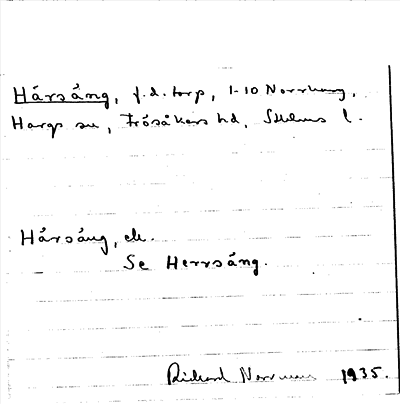 Hårsång, f.d. torp, 1-10 Norrharg,
Hargs sn, Frösåkers hd, Sthlms l.
Hårsång, ell.
Se Herrsång.
Richard Norrman 1935.